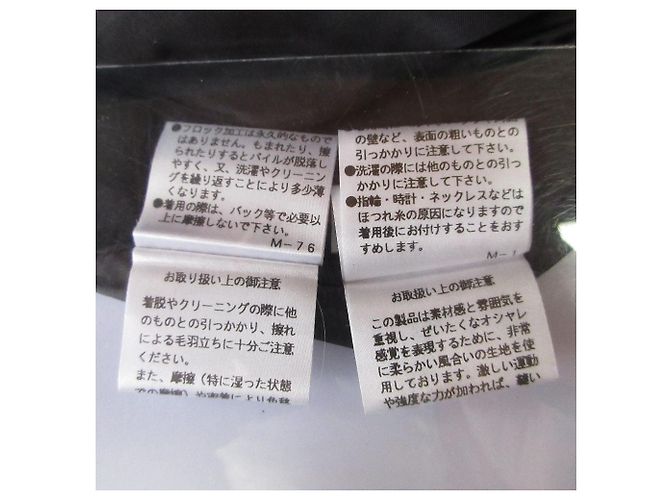 ●フロック加工は永久的なもので
はありません。もまれたり、擦
られたりするとパイルが脱落し
やすく、又、洗濯やクリーニン
グを繰り返すことにより多少薄
くなります。
●着用の際は、バック等で必要以
上に摩擦しないで下さい。
M-76
お取り扱い上の御注意
着脱やクリーニングの際に他
のものとの引っかかり、擦れ
による毛羽立ちに十分ご注意
ください。
また、摩擦（特に湿った状態
での摩擦）や
により色移
の壁など、表面の粗いものとの
引っかかりに注意して下さい。
●洗濯の際には他のものとの引っ
かかりに注意して下さい。
●指輪・時計・ネックレスなどは
ほつれ糸の原因になりますので
着用後にお付けすることをおす
すめします。
お取り扱い上の御注意
この製品は素材感と雰囲気を
重視し、ぜいたくなオシャレ
感覚を表現するために、非常
に柔らかい風合いの生地を使
用しております。激しい運動
や強度な力が加われば、縫い